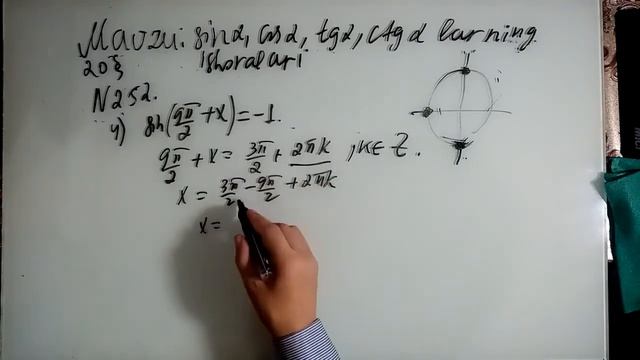 Mavzu: sinα, cosα, tgα, ctgα larning
20-§ Ishoralari
N252.
4) sin(9π/2 + x) = -1.
9π/2 + x = 3π/2 + 2πk, k∈Z.
x = 3π/2 - 9π/2 + 2πk
x =